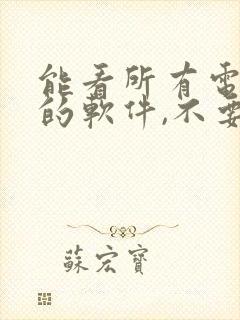 能看所有電
的軟件,不要
蘇宏寶